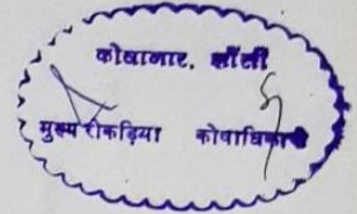 कोषागार, झाँसी
मुख्य रोकड़िया कोषाधिकारी